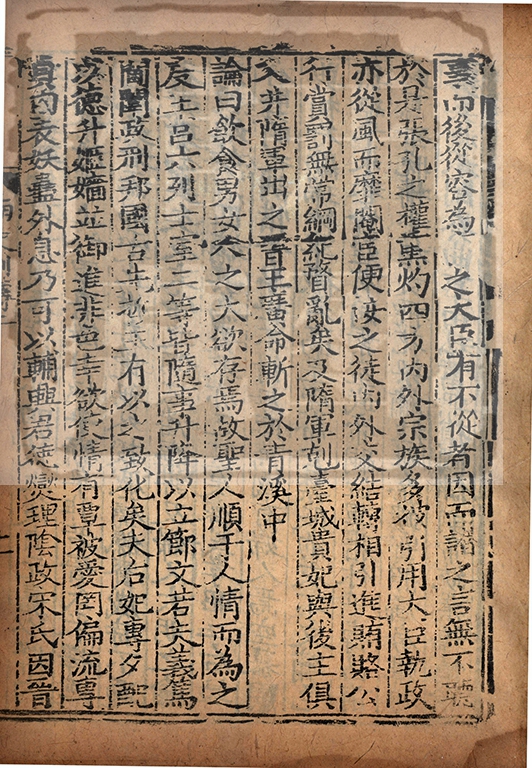 事而後從容為之大臣有不從者因而譖之言無不聽
於是張孔之權熏灼四方內外宗族多被引用大臣執政
亦從風而靡閹宦便佞之徒內外交結轉相引進賄賂公
行賞罰無常綱紀瞀亂矣及隋軍剋臺城貴妃與後主俱
入井隋軍出之晉王廣命斬之於青溪中
論曰飲食男女人之大欲存焉故聖人順于人情而為之
度王宮六列士室二等皆隨事升降以立節文若夫義篤
閫闈政刑邦國古先哲王有以之致化矣夫后妃專夕配
以德升姬嬙並御進非色幸欲使情有覃被愛罔偏流專
貞內表妖蠱外息乃可以輔興君德燮理陰政宋氏因晉